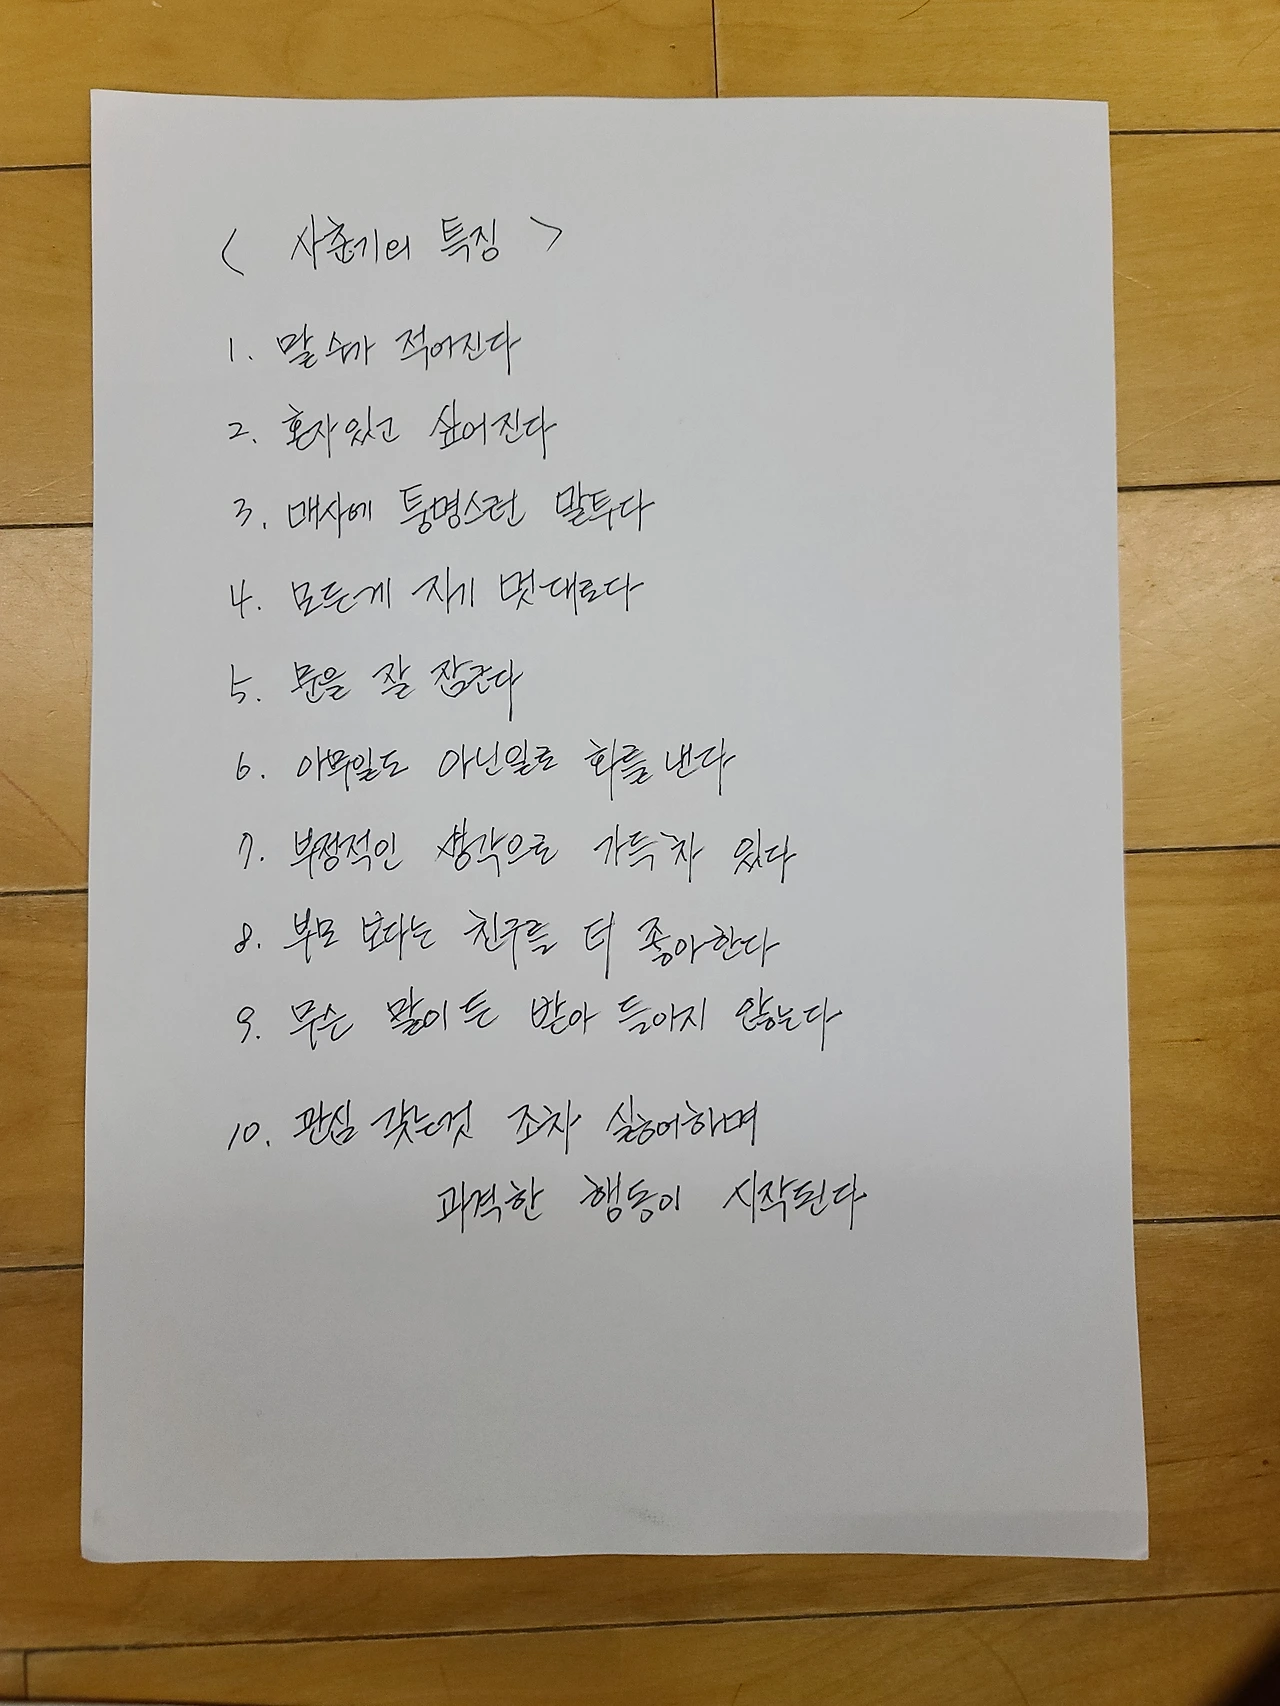 < 사춘기의 특징 >
1. 말 수가 적어진다
2. 혼자 있고 싶어진다
3. 매사에 퉁명스런 말투다
4. 모든게 자기 멋대로다
5. 문을 잘 잠근다
6. 아무일도 아닌일로 화를 낸다
7. 부정적인 생각으로 가득차 있다
8. 부모 보다는 친구를 더 좋아한다
9. 무슨 말이든 받아 들이지 않는다
10. 관심 갖는것 조차 싫어하며
과격한 행동이 시작된다